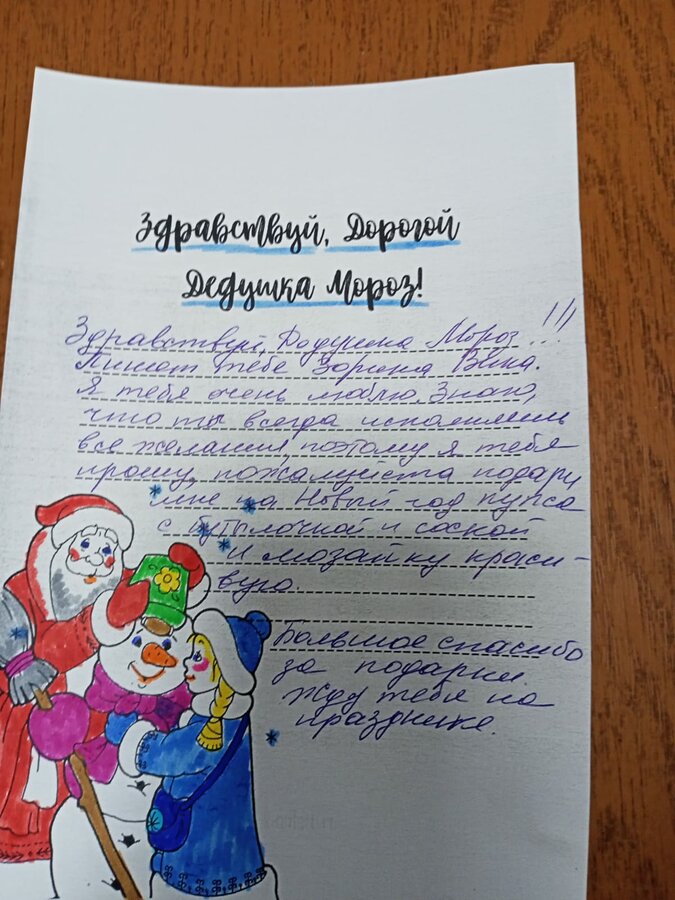 Здравствуй, Дорогой
Дедушка Мороз!
Здравствуй, Дедушка Мороз...!!!
Пишет тебе Зорина Вика.
Я тебя очень люблю. Знаю,
что ты всегда исполняешь
все желания, поэтому я тебя
прошу, пожалуйста подари
мне на Новый год пупса
с бутылочкой и соской
и мозайку краси-
вую.
Большое спасибо
за подарки.
Жду тебя на
празднике.